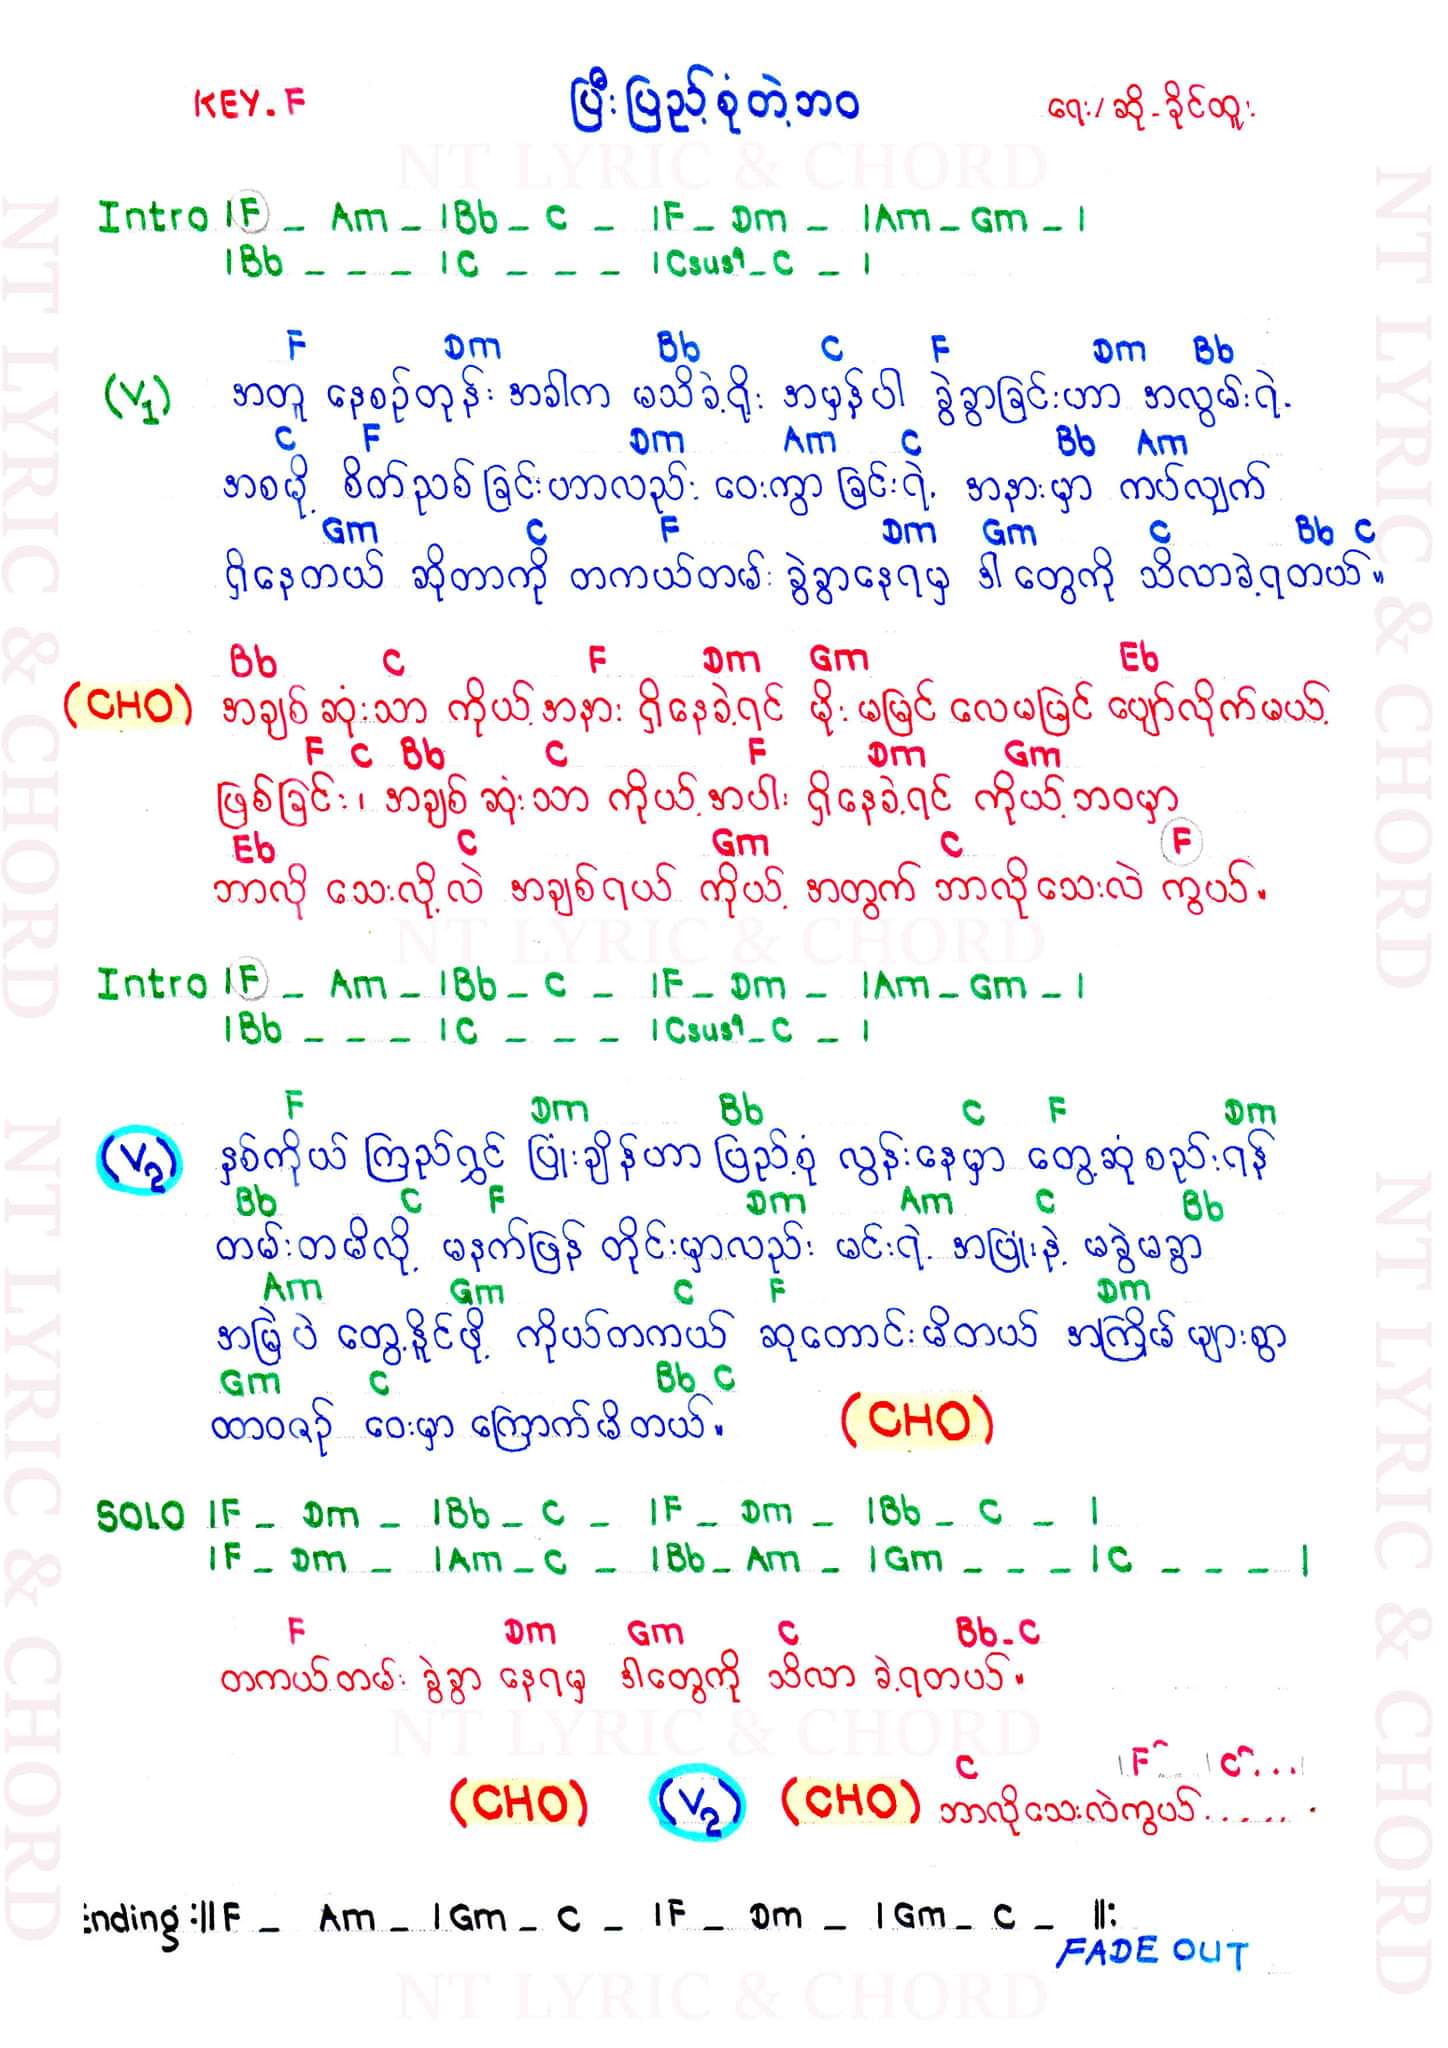 KEY. F
ပြီးပြည့်စုံတဲ့ဘဝ
ရေး/ဆို - ခိုင်ထူး
NT LYRIC & CHORD
Intro |F _ Am _ |Bb _ C _ |F _ Dm _ |Am _ Gm _ |
|Bb _ _ _ |C _ _ _ |Csus4 _ C _ |
F Dm Bb C F Dm Bb
(V1) အတူ နေစဉ်တုန်း အခါက မသိခဲ့ရိုး အမှန်ပါ ခွဲခွာခြင်းဟာ အလွမ်းရဲ့
C F Dm Am C Bb Am
အစမို့ စိတ်ညစ်ခြင်းဟာလည်း ဝေးကွာခြင်းရဲ့ အနားမှာ ကပ်လျှက်
Gm C F Dm Gm C Bb C
ရှိနေတယ် ဆိုတာကို တကယ်တမ်း ခွဲခွာနေရမှ ဒါတွေကို သိလာခဲ့ရတယ်။
Bb C F Dm Gm Eb
(CHO) အချစ်ဆုံးသာ ကိုယ့်အနား ရှိနေခဲ့ရင် မိုးမမြင် လေမမြင် ပျော်လိုက်မယ့်
F C Bb C F Dm Gm
ဖြစ်ခြင်း၊ အချစ်ဆုံးသာ ကိုယ့်အပါး ရှိနေခဲ့ရင် ကိုယ့်ဘဝမှာ
Eb C Gm C F
ဘာလို သေးလို့လဲ အချစ်ရယ် ကိုယ့် အတွက် ဘာလိုသေးလဲ ကွယ်။
NT LYRIC & CHORD
Intro |F _ Am _ |Bb _ C _ |F _ Dm _ |Am _ Gm _ |
|Bb _ _ _ |C _ _ _ |Csus4 _ C _ |
F Dm Bb C F Dm
(V2) နှစ်ကိုယ် ကြည်ရွှင် ပြုံးချိန်ဟာ ပြည့်စုံ လွန်းနေမှာ တွေ့ဆုံစည်းရန်
Bb C F Dm Am C Bb
တမ်းတမိလို့ မနက်ဖြန် တိုင်းမှာလည်း မင်းရဲ့ အပြုံးနဲ့ မခွဲမခွာ
Am Gm C F Dm
အမြဲပဲ တွေ့နိူင်ဖို့ ကိုယ်တကယ် ဆုတောင်းမိတယ် အကြိမ်များစွာ
Gm C Bb C
ထာဝစဉ် ဝေးမှာ ကြောက်မိတယ်။ (CHO)
SOLO |F _ Dm _ |Bb _ C _ |F _ Dm _ |Bb _ C _ |
|F _ Dm _ |Am _ C _ |Bb _ Am _ |Gm _ _ _ |C _ _ _ |
F Dm Gm C Bb _ C
တကယ်တမ်း ခွဲခွာ နေရမှ ဒါတွေကို သိလာ ခဲ့ရတယ်။
NT LYRIC & CHORD
C |F^ |C^...|
(CHO) (V2) (CHO) ဘာလိုသေးလဲကွယ်.......
Ending :||F _ Am _ |Gm _ C _ |F _ Dm _ |Gm _ C _ ||:
FADE OUT
NT LYRIC & CHORD
NT LYRIC & CHORD
NT LYRIC & CHORD
NT LYRIC & CHORD
NT LYRIC & CHORD